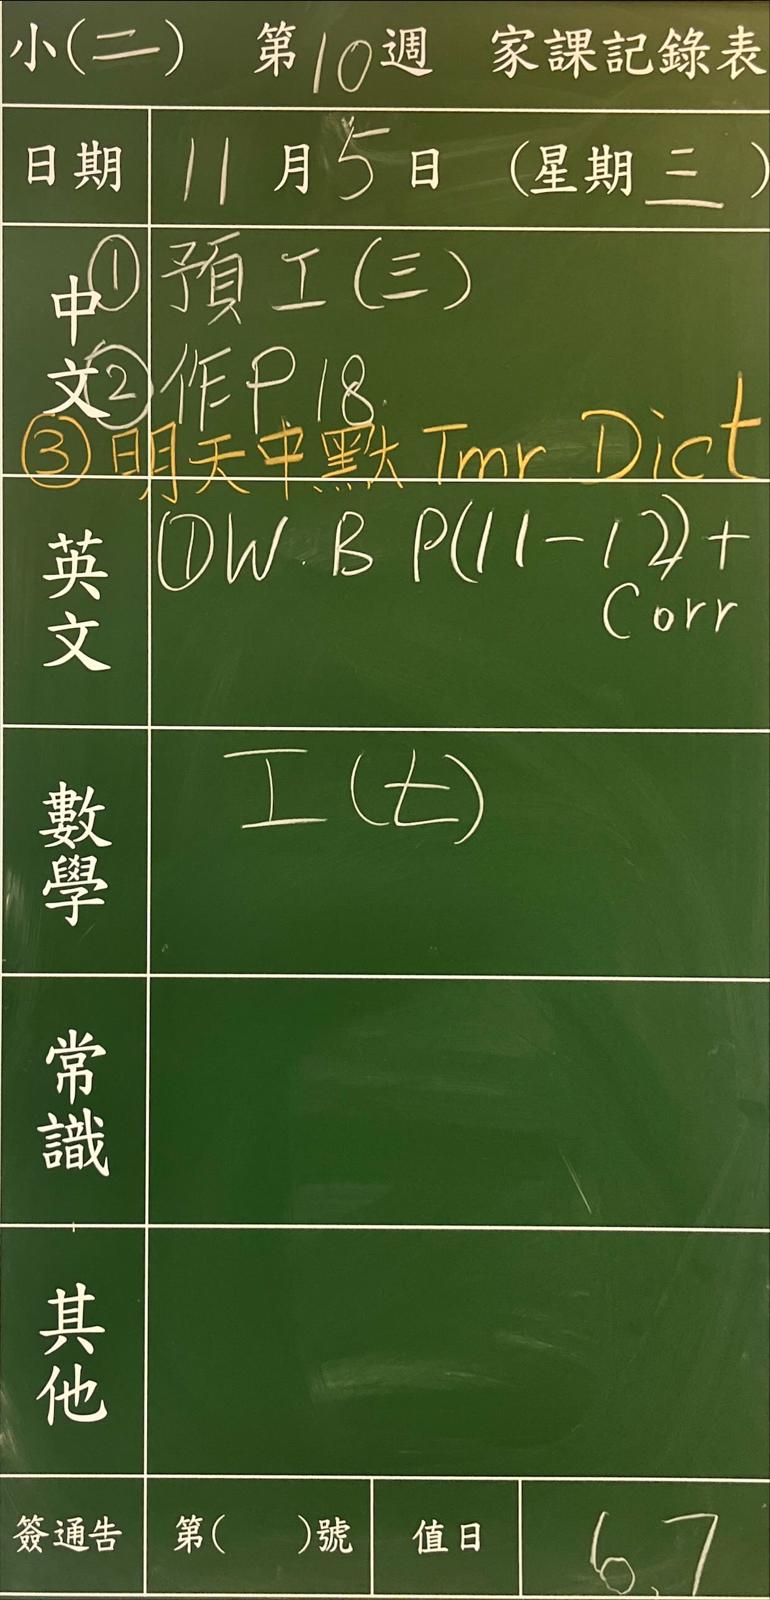 小(二) 第10週 家課記錄表
日期 11月5日 (星期三)
中文
① 預工(三)
② 作P18.
③ 明天中默 Tmr Dict
英文
① W.B P(11-12)+
Corr
數學
工(七)
常識
其他
簽通告 第( )號 值日 6,7